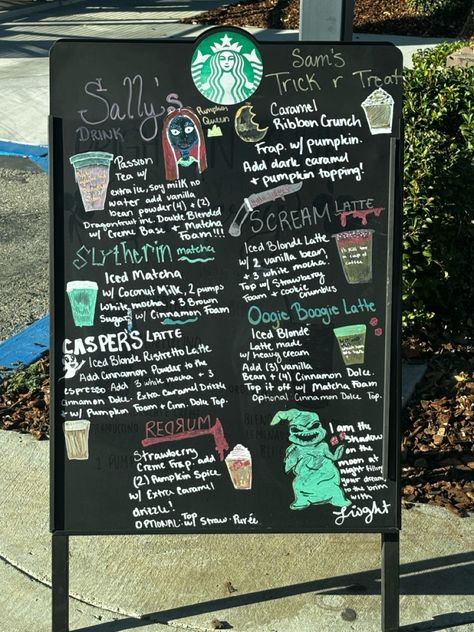 Sally's
DRINK
Pumpkin
Queen
Passion
Tea w/
extra ice, soy milk no
water add vanilla
bean powder (4) + (2)
Dragonfruit inc. Double Blended
w/ Creme Base + Matcha
Foam!!!
Slytherin matcha
Iced Matcha
w/ Coconut Milk, 2 pumps
white mocha + 3 Brown
Sugar w/ Cinnamon Foam
CASPER'S LATTE
Iced Blonde Ristretto Latte
Add Cinnamon Powder to the
espresso Add 3 white mocha + 3
Cinnamon Dolce. Extra Caramel Drizzle
+ w/ Pumpkin Foam + Cinn. Dolce Top.
REDRUM
Strawberry
Creme Frap. add
(2) Pumpkin Spice
w/ Extra Caramel
drizzle!
OPTIONAL: Top
w/ Straw. Purée
Sam's
Trick r Treat
Caramel
Ribbon Crunch
Frap. w/ pumpkin.
Add dark caramel
+ pumpkin topping!
SCREAM LATTE
Iced Blonde Latte
w/ 2 vanilla bean
+ 3 white mocha.
Top w/ Strawberry
Foam + cookie
crumbs
Oogie Boogie Latte
Iced Blonde
Latte made
w/ heavy cream
Add (3) Vanilla
Bean + (4) Cinnamon Dolce.
Top it off w/ Matcha Foam
Optional: Cinnamon Dolce Top.
I am the
Shadow
on the
moon at
night filling
your dreams
to the brim
with